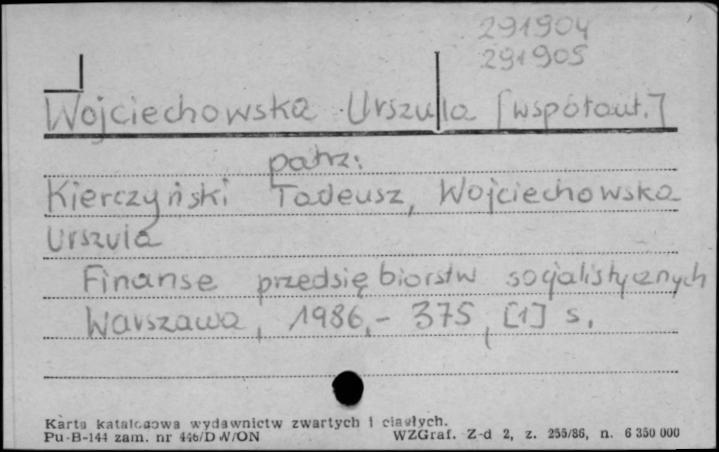 291904
291905
Wojciechowska Urszula [współaut.]
patrz:
Kierczyński Tadeusz, Wojciechowska
Urszula
Finanse przedsiębiorstw socjalistycznych
Warszawa, 1986,- 375, [1] s.
Karta katalogowa wydawnictw zwartych i ciągłych.
Pu-B-144 zam. nr 446/DW/ON WZGraf. Z-d 2, z. 255/86, n. 6 350 000